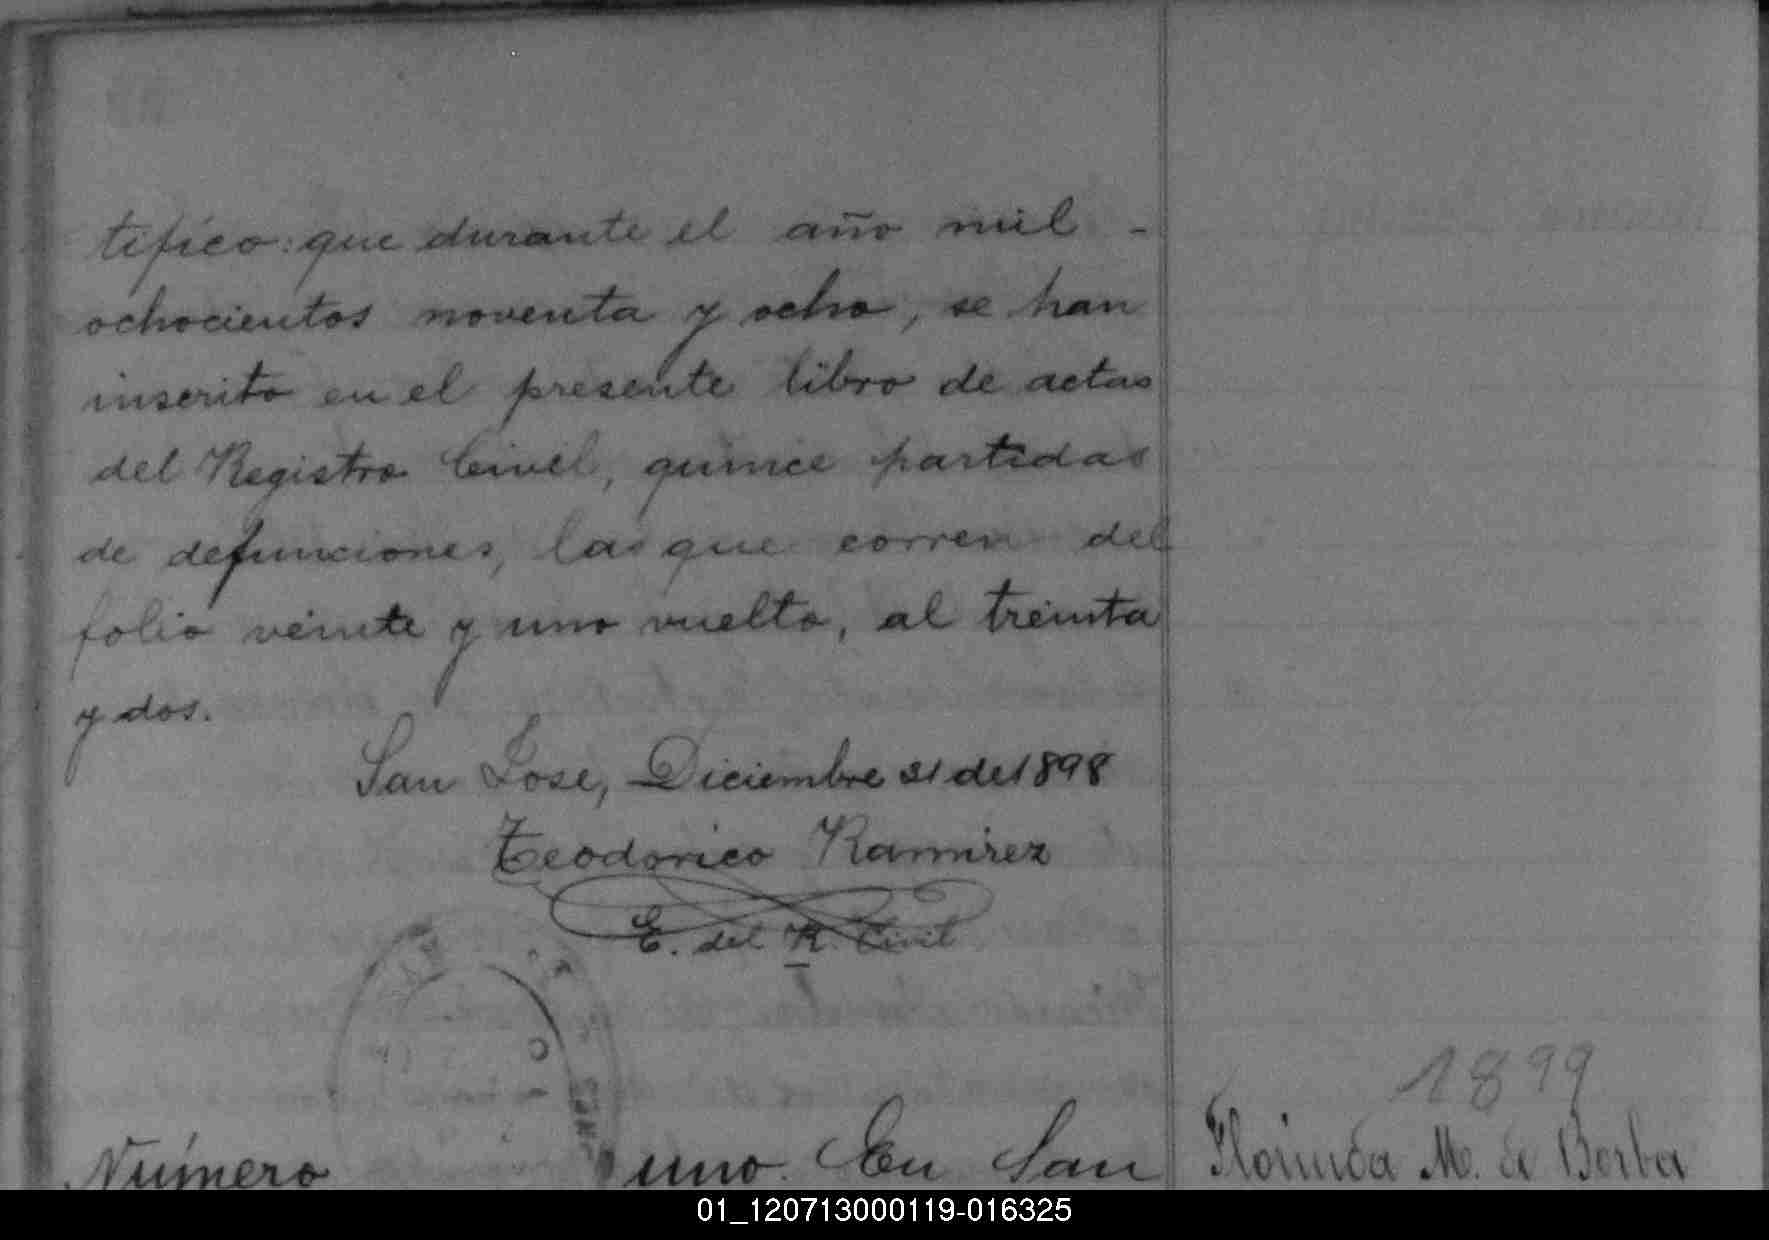 tifico: que durante el año mil -
ochocientos noventa y ocho, se han
inscrito en el presente libro de actas
del Registro Civil, quince partidas
de defunciones, las que corren del
folio veinte y uno vuelto, al treinta
y dos.
San Jose, Diciembre 31 de 1898
Teodorico Ramirez
E. del R. Civil
1899
Número uno. En San
Florinda M. de Borba
01_120713000119-016325